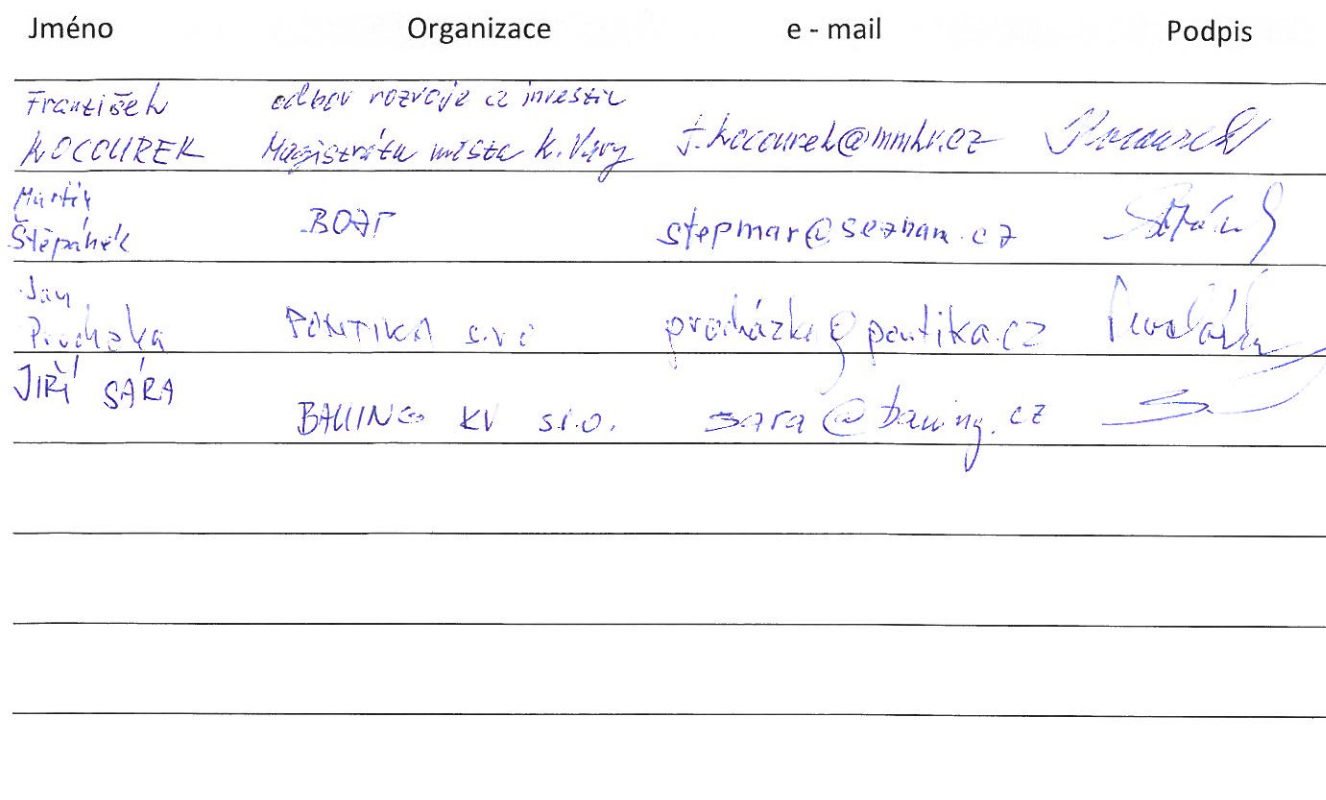 Jméno Organizace e - mail Podpis
František odbor rozvoje a investic
KOCOUREK Magistrátu města K. Vary f.kocourek@mmkv.cz Kocourek
Martin
Štěpánek BOZP stepmar@seznam.cz
Jan
Procházka PONTIKA s.r.o procházka@pontika.cz Procházka
JIŘÍ SÁRA
BAUING KV s.r.o. sara@bauing.cz